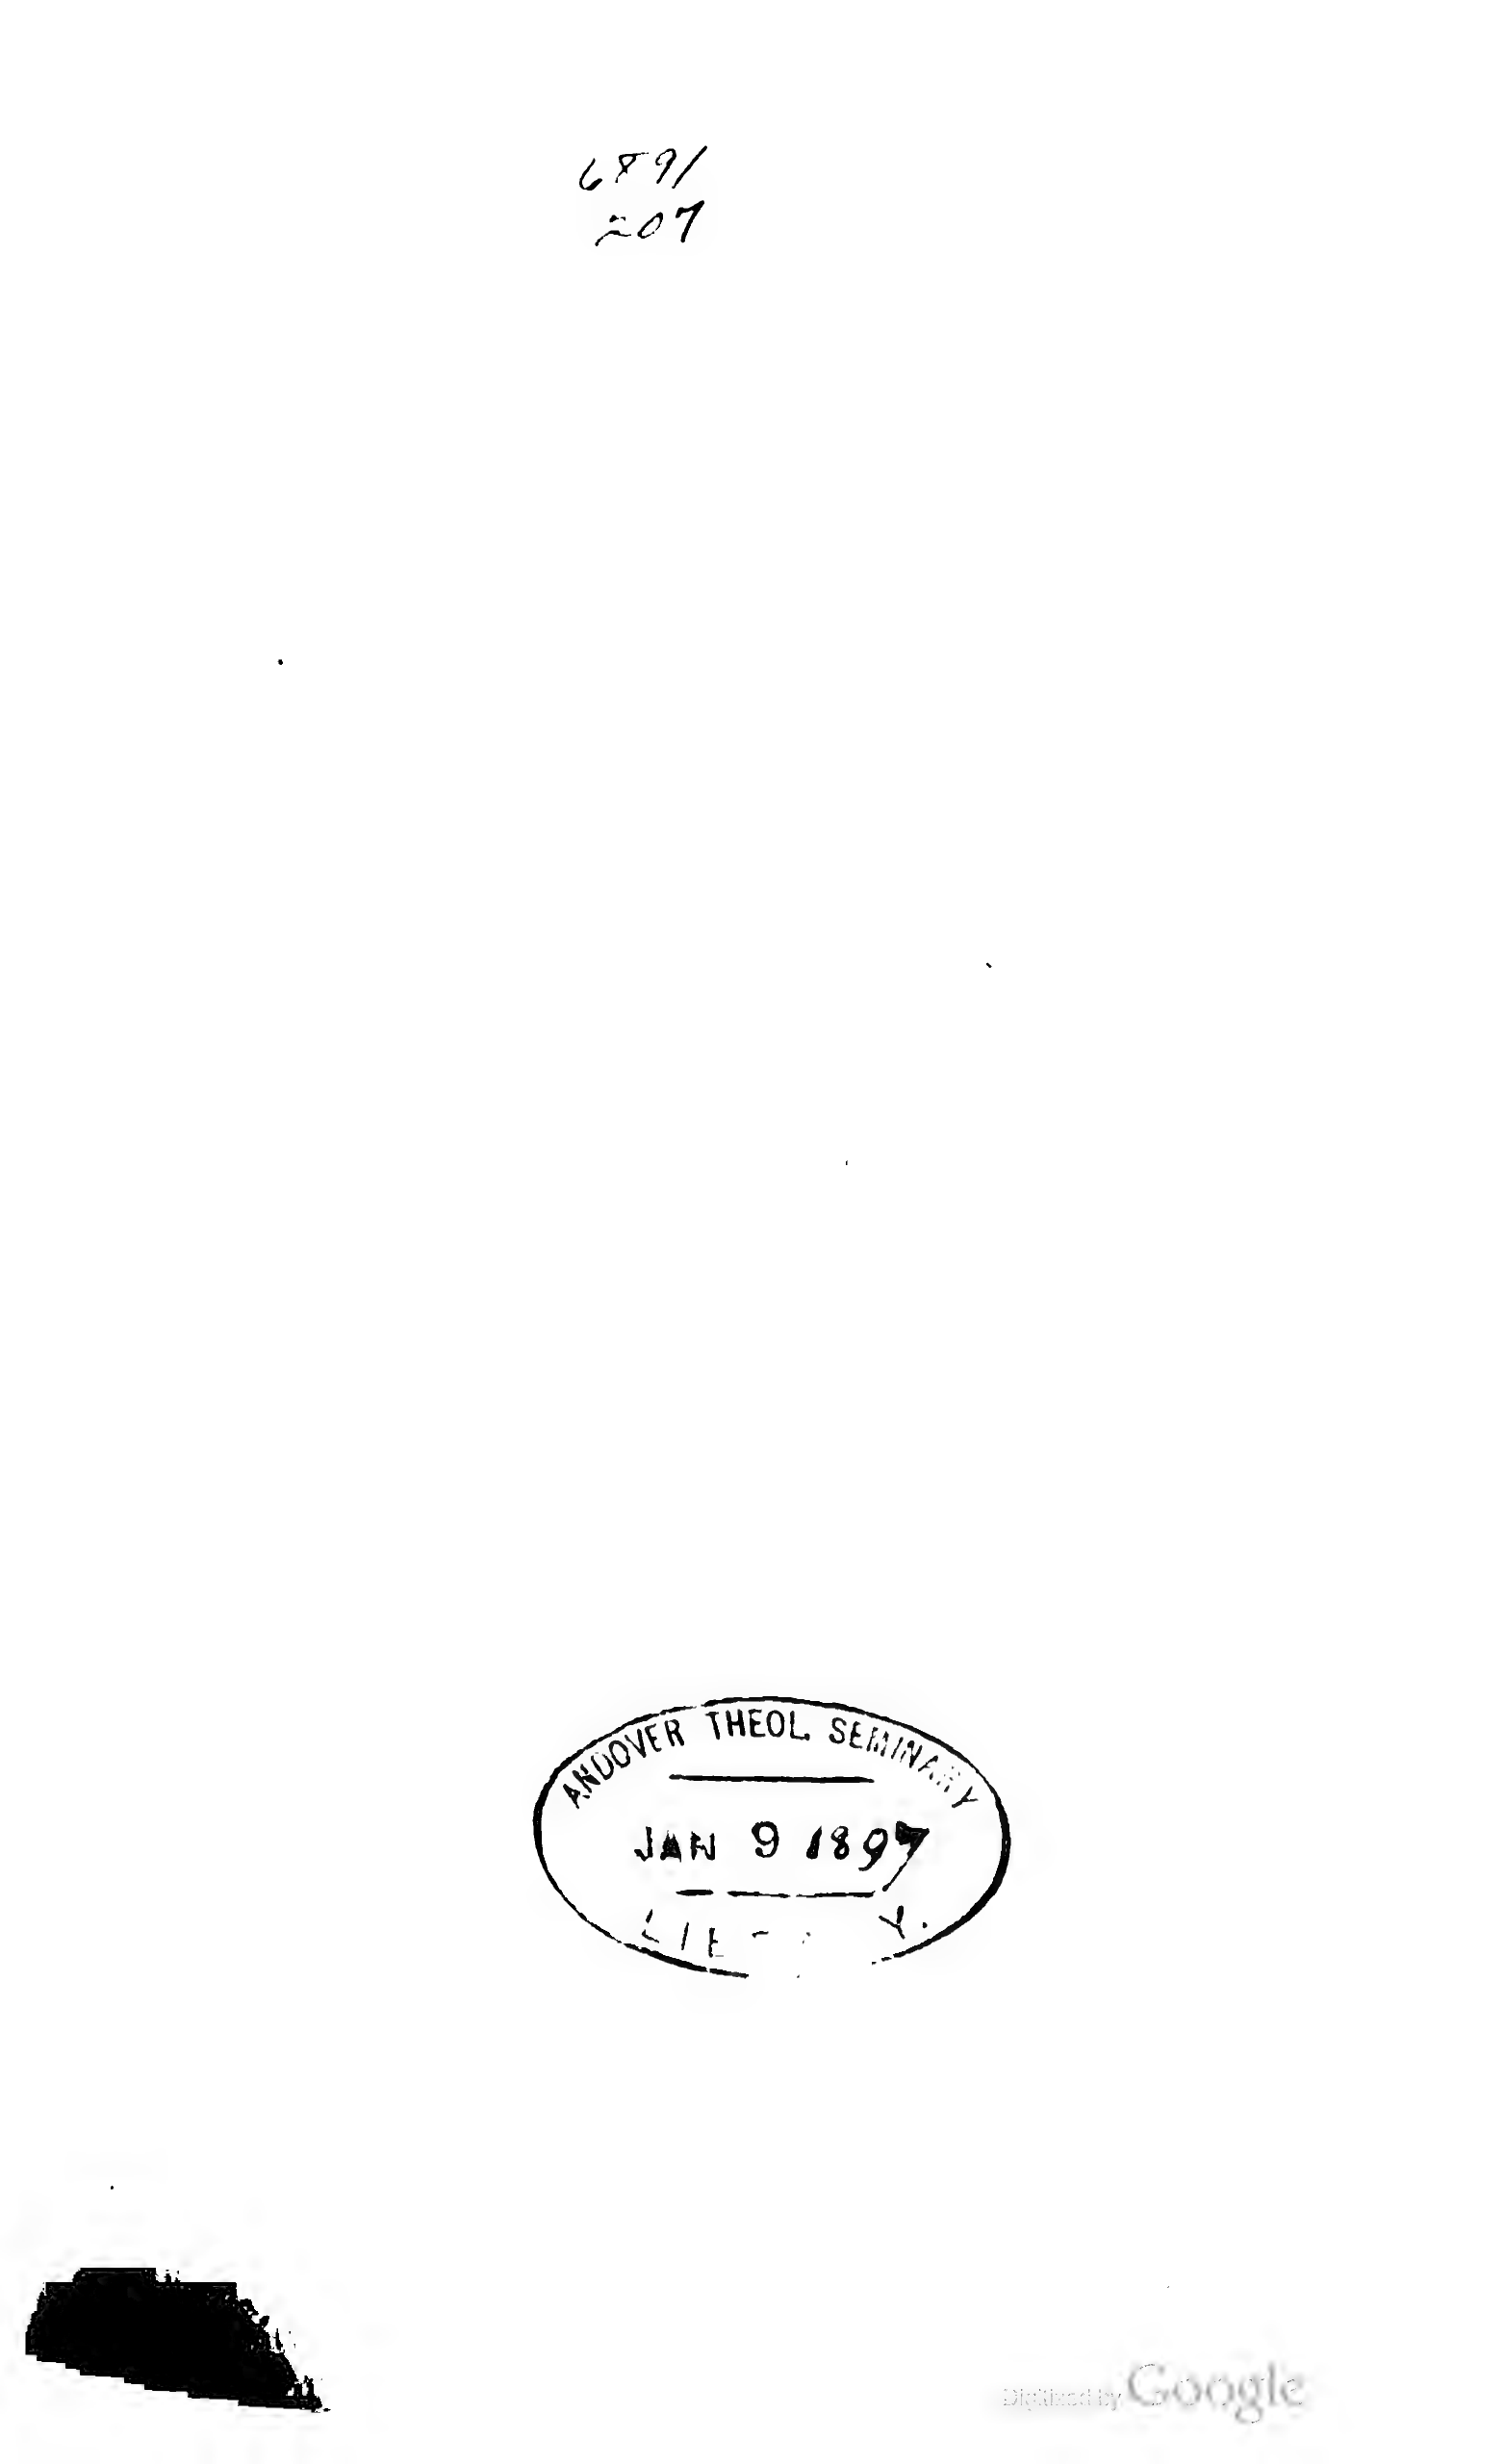 6891
207
ANDOVER THEOL. SEMINARY
JAN 9 1897
LIBRARY.
Digitized by Google